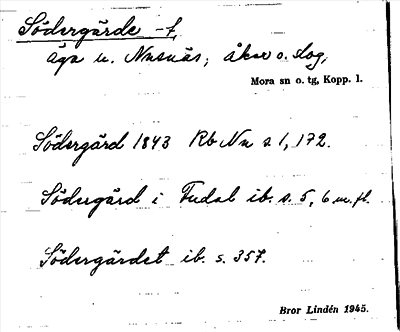 Södergärde -t,
äga u. Nusnäs; åker o. slog,
Mora sn o. tg, Kopp. l.
Södergärd 1843 Rb Nn s 1, 172.
Södergärd i Fudal ib. s. 5, 6 m. fl.
Södergärdet ib. s. 357.
Bror Lindén 1945.